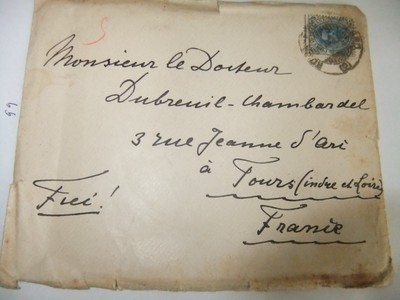 Monsieur le Docteur
Dubreuil-Chambardel
3 rue Jeanne d'Arc
à Tours (Indre et Loire)
Frei!
France